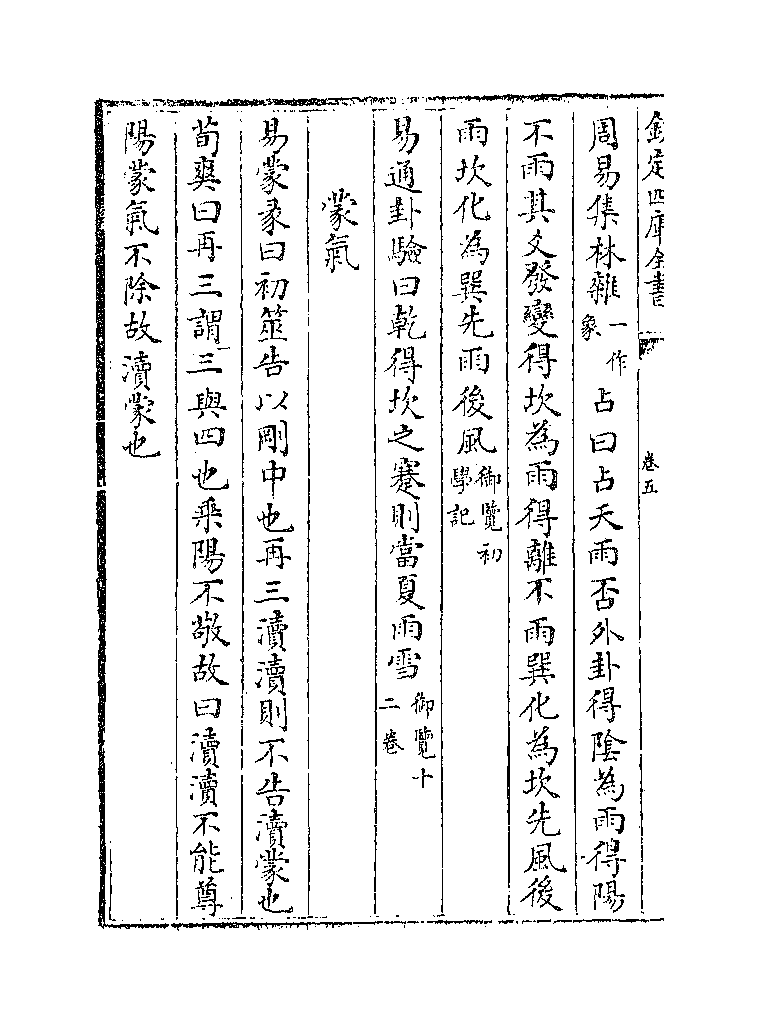 欽定四庫全書
卷五
周易集林雜一作彖占曰占天雨否外卦得陰為雨得陽
不雨其爻發變得坎為雨得離不雨巽化為坎先風後
雨坎化為巽先雨後風御覽初學記
易通卦驗曰乾得坎之蹇則當夏雨雪御覽十二卷
蒙氣
易蒙彖曰初筮告以剛中也再三瀆瀆則不告瀆蒙也
荀爽曰再三謂三與四也乘陽不敬故曰瀆瀆不能尊
陽蒙氣不除故瀆蒙也